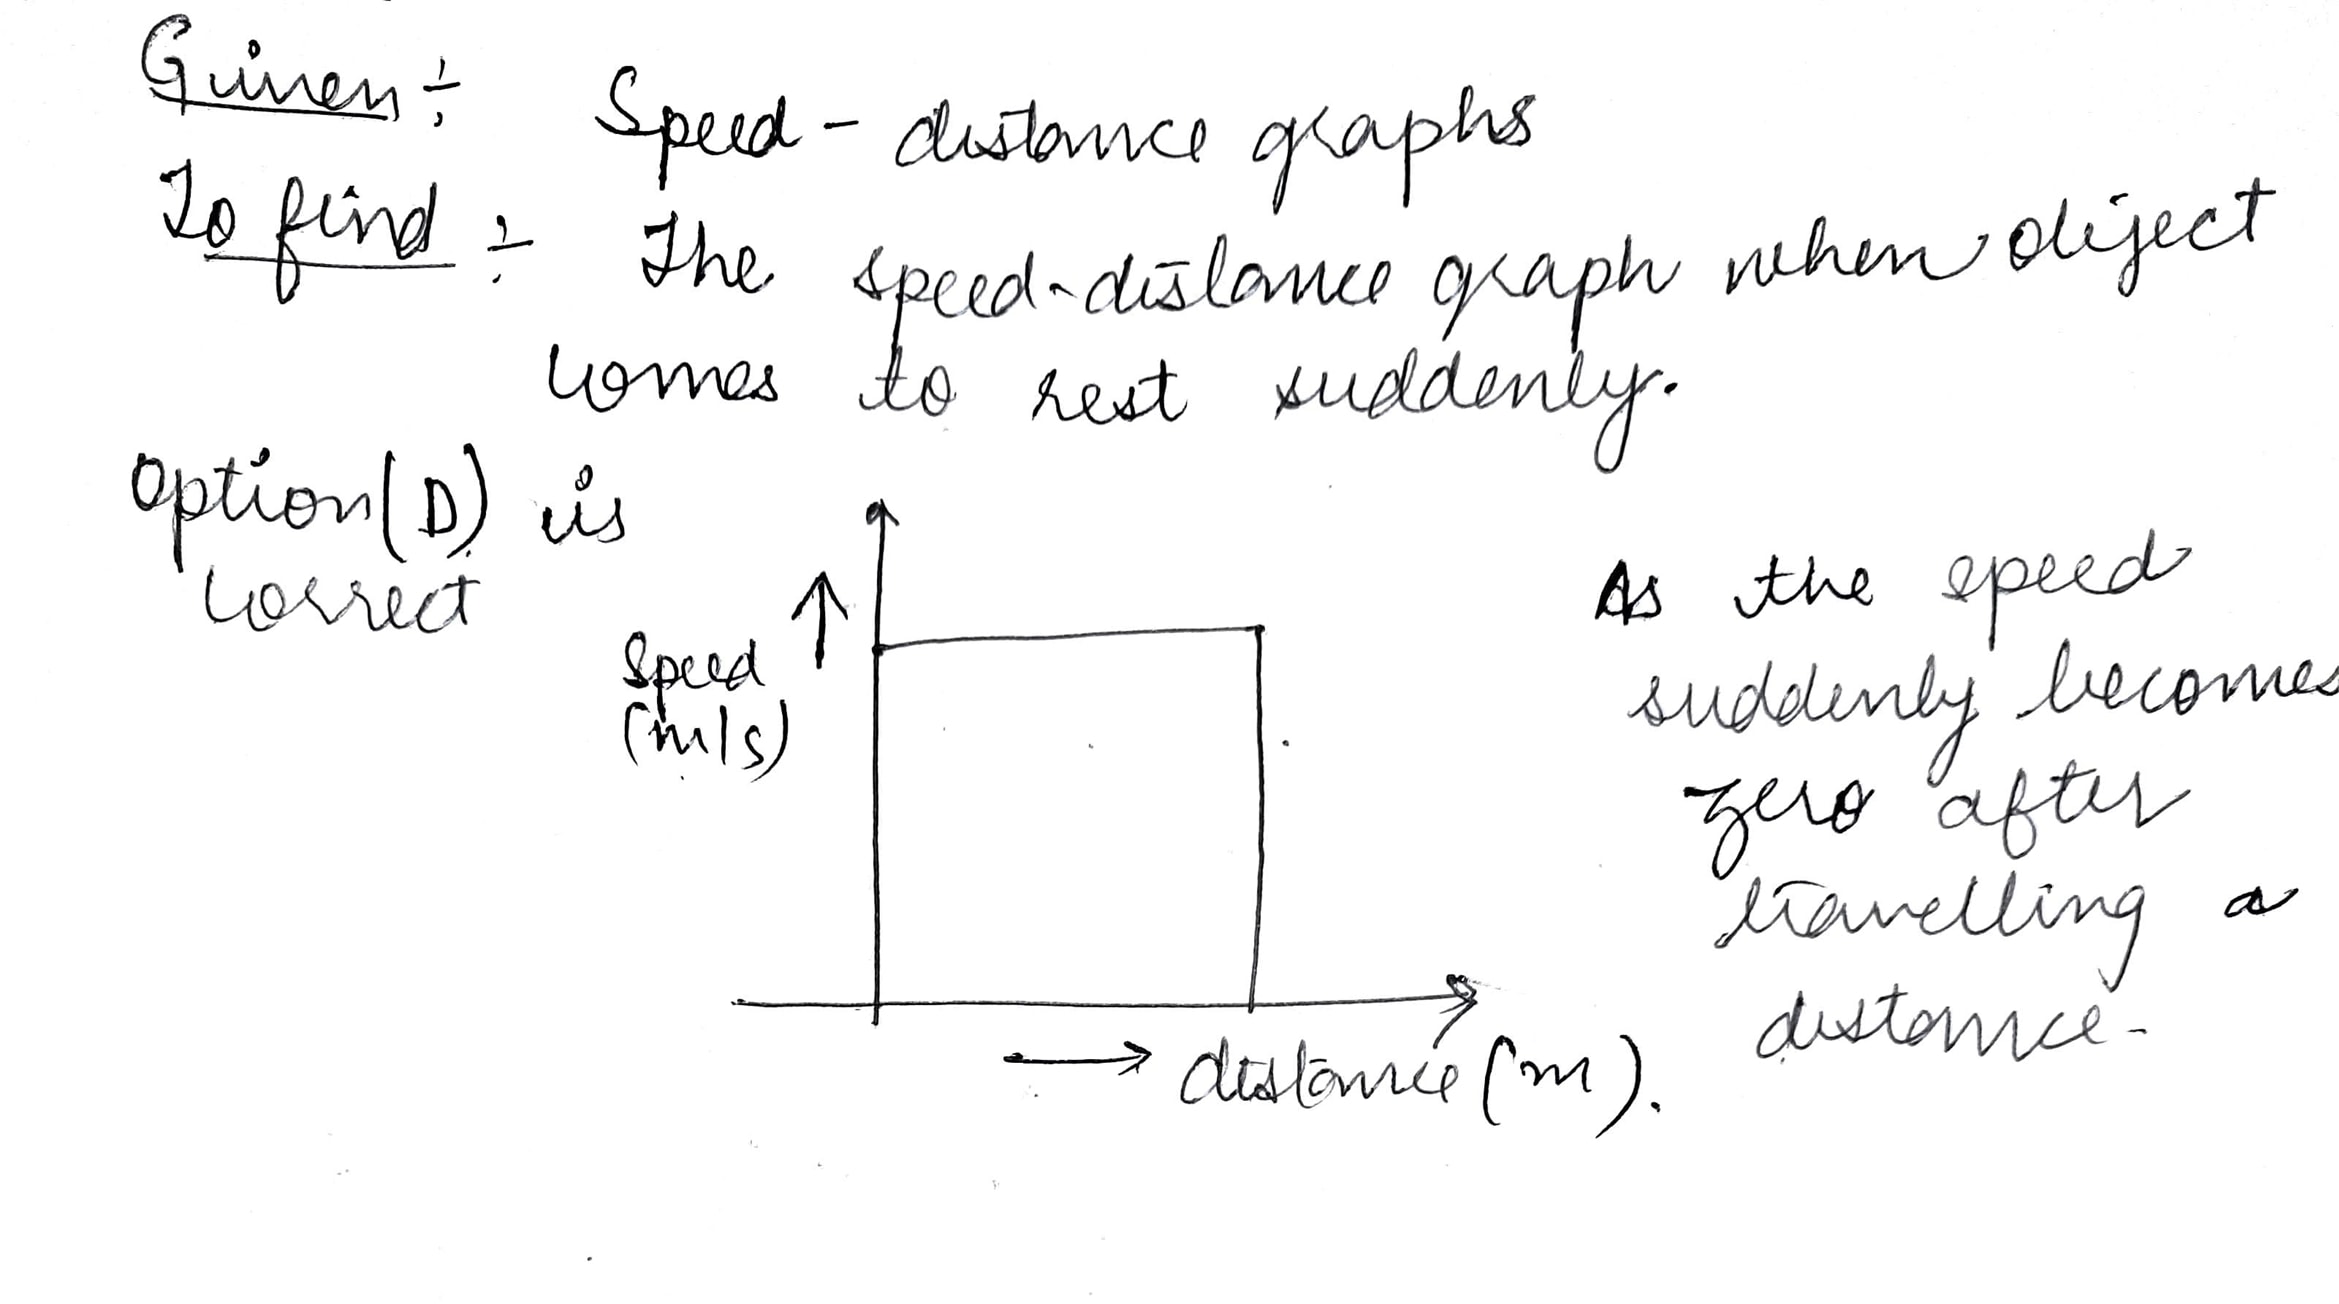 Given ÷ Speed - distance graphs
To find ÷ The speed-distance graph when object
comes to rest suddenly.
Option (D) is
correct
Speed
(m/s)
distance (m).
As the speed
suddenly becomes
zero after
travelling a
distance-